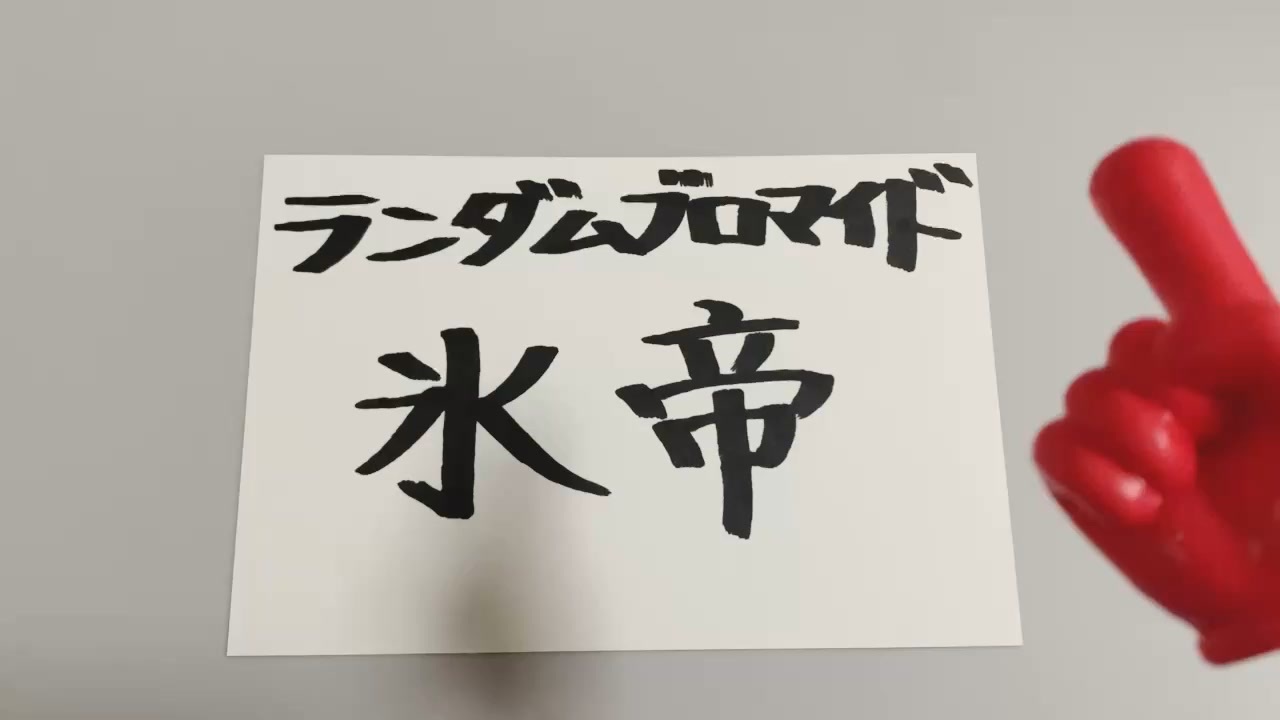 ランダムブロマイド
氷帝